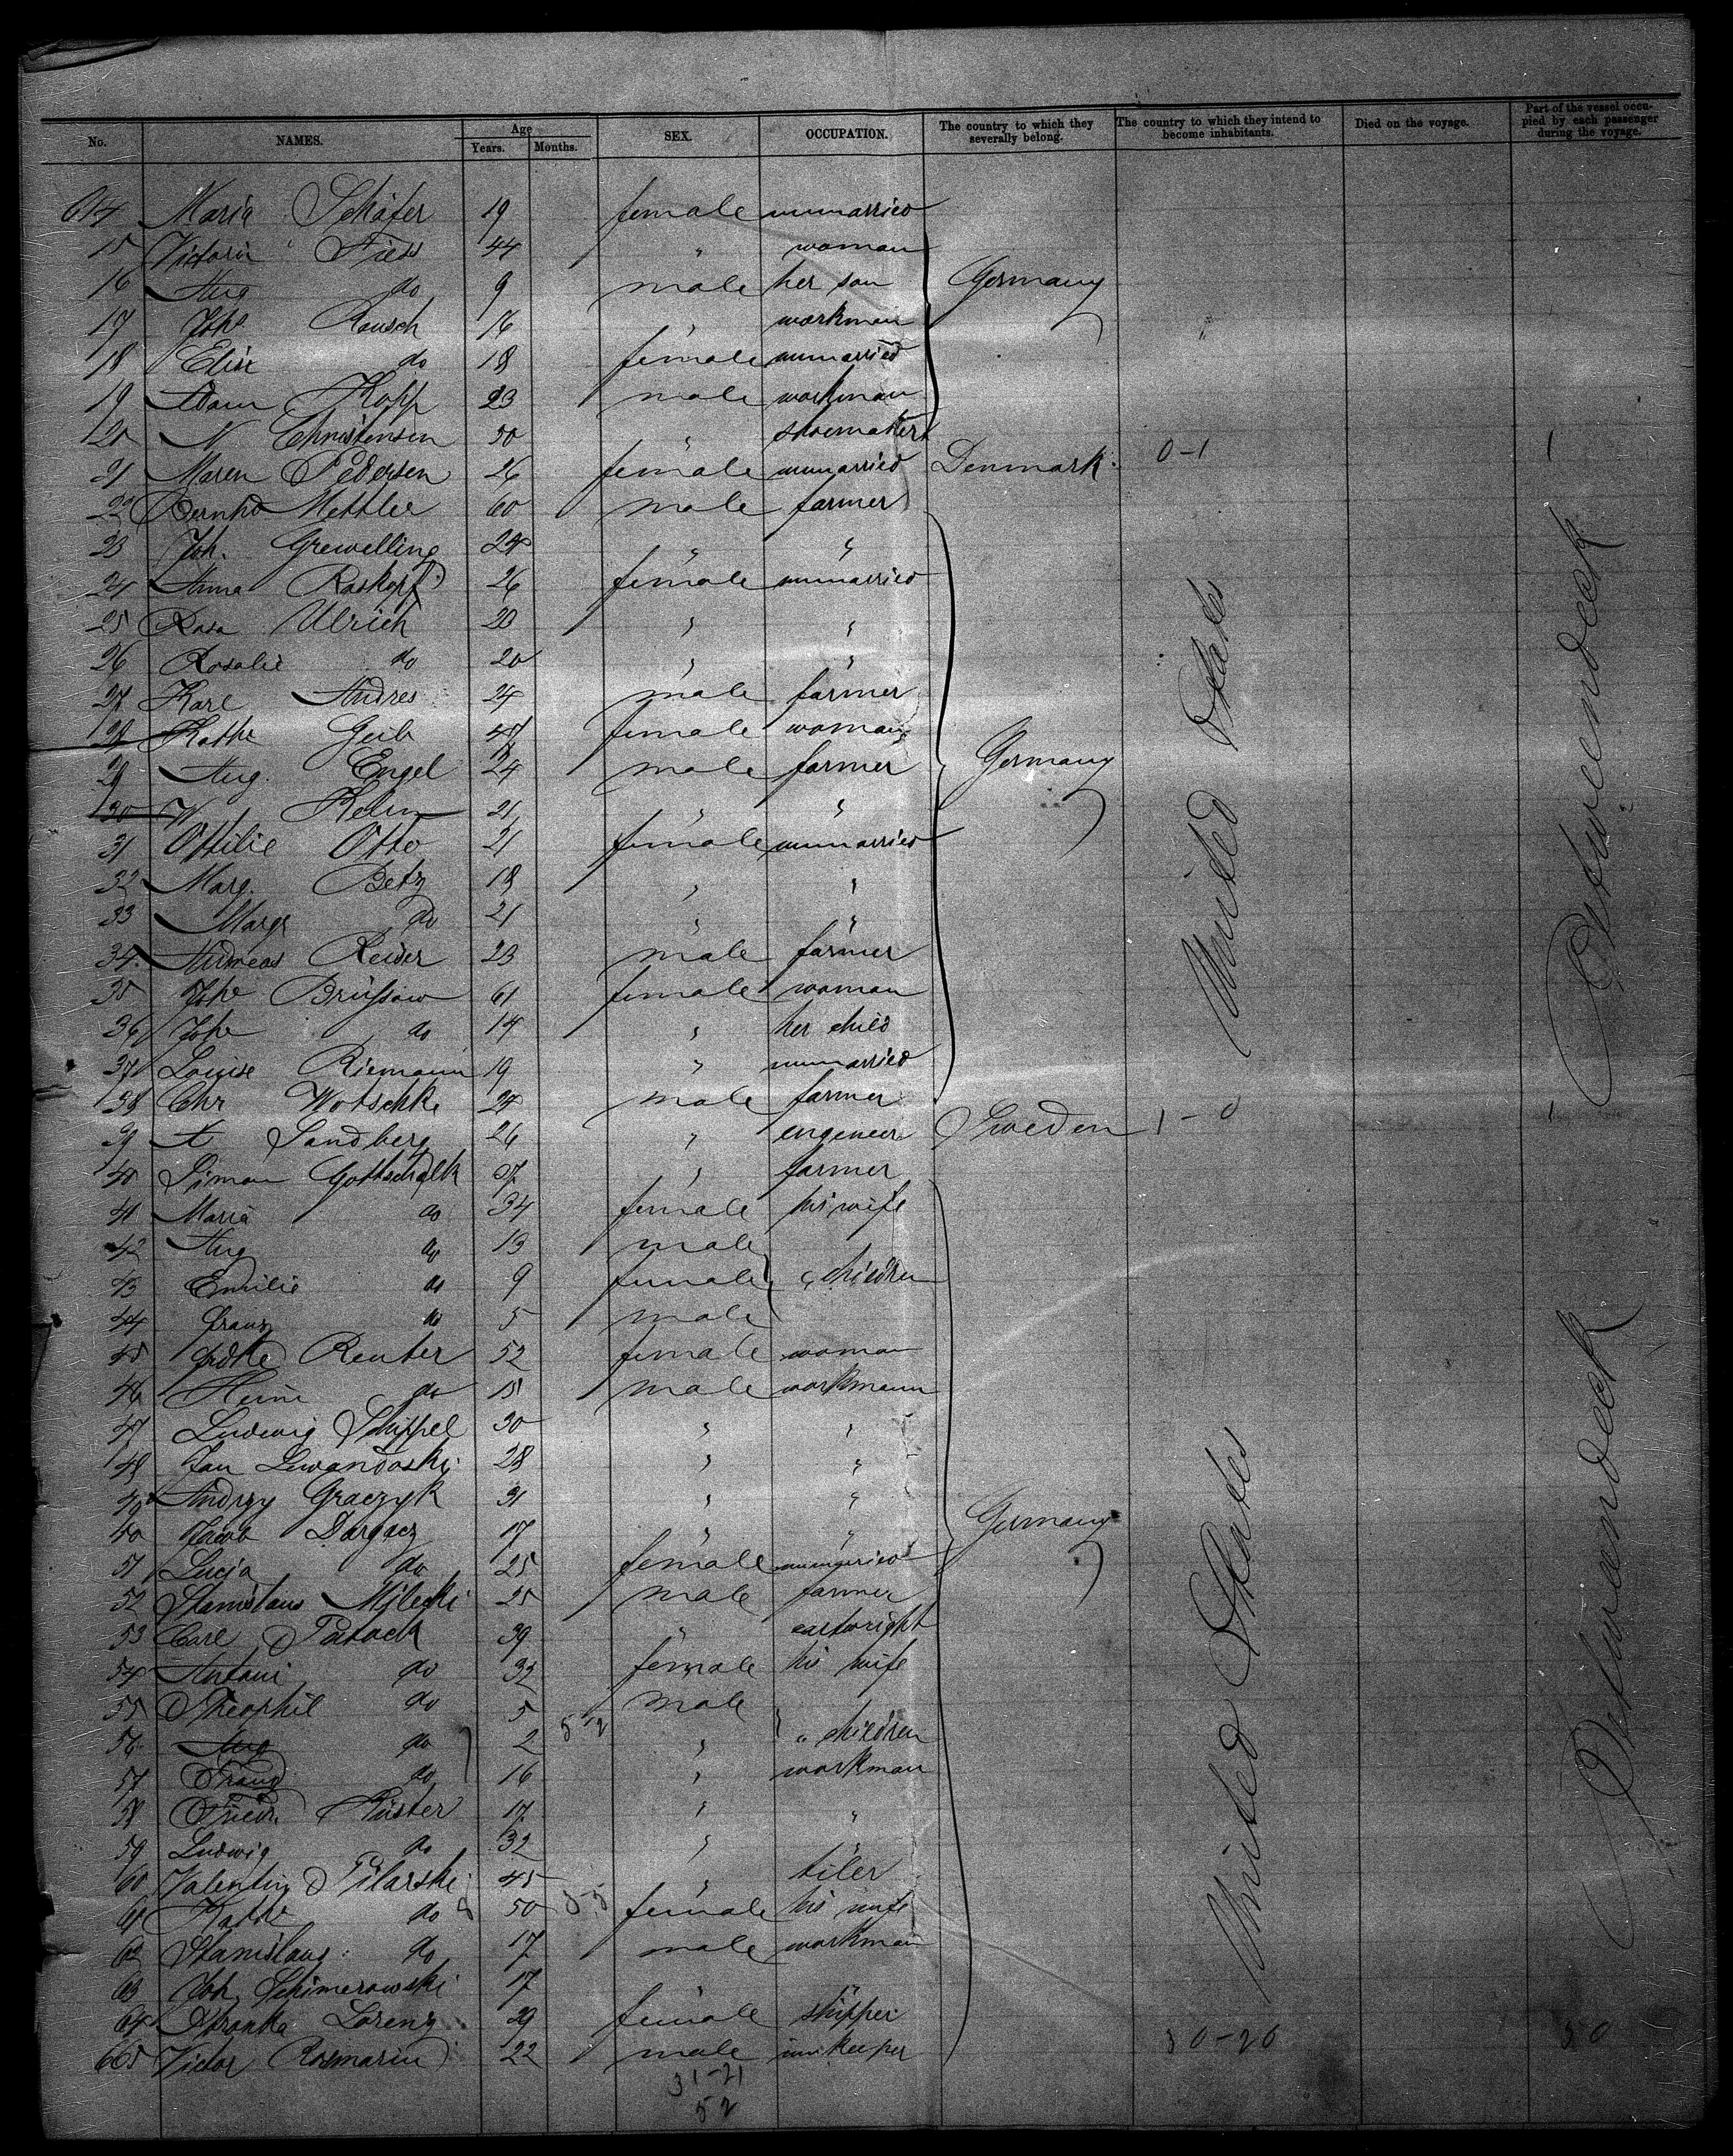 No. NAMES. Age Years. Months. SEX. OCCUPATION. The country to which they severally belong. The country to which they intend to become inhabitants. Died on the voyage. Part of the vessel occupied by each passenger during the voyage.
614 Maria Schäfer 19 female unmarried
15 Victoria Fiess 44 " woman
16 Aug do 9 male her son Germany
17 Johe Rausch 16 " workman "
18 Elise do 18 female unmarried
19 Adam Kopp 23 male workman
120 N Christensen 30 " shoemaker
21 Maren Pedersen 26 female unmarried Denmark 0-1 1
22 Bernhd Mettler 60 male farmer
23 Joh. Grewelling 24 " "
24 Anna Roskopf 26 female unmarried
25 Rosa Ulrich 23 " "
26 Rosalie do 20 " "
27 Karl Andres 24 male farmer
28 Kathe Geib 47 female woman
29 Aug. Engel 24 male farmer Germany United States Betweendeck
30 W Kelm 21 " "
31 Ottilie Otto 21 female unmarried
32 Marg. Betz 18 " "
33 Margr do 21 " "
34 Andreas Reider 23 male farmer
35 Johe Brüssow 61 female woman
36 Johe do 14 " her child
37 Louise Riemann 19 " unmarried
138 Chr Wotschke 24 male farmer
39 A Sandberg 26 " engeneer Sweden 1-0 1
40 Simon Gottschalk 37 " farmer
41 Maria do 34 female his wife
42 Aug do 13 male
43 Emilie do 9 female " children
44 Franz do 5 male
45 Fredke Reuter 52 female woman
46 Heinr do 15 male workmann
47 Ludwig Schippel 30 " "
48 Jan Lewandoski 28 " "
49 Andrzy Graczyk 31 " "
50 Jacob Dargacz 17 " " Germany
51 Lucja do 25 female unmarried
52 Stanislaus Milecki 25 male farmer
53 Carl Patock 39 " cartwright
54 Antoni do 32 female his wife
55 Theophil do 5 male
56 Aug do 2 " " children
57 Franz do 16 " workman
58 Friedr. Küster 17 " " United States Betweendeck
59 Ludwig do 32 " "
60 Valentin Pilarski 45 " tiler
61 Kathe do 50 female his wife
62 Stanislaus do 17 male workman
63 Joh. Schimerowski 17 " "
64 Lorenz 29 female skipper
665 Victor Rosmarin 22 male innkeeper 30-20 50
31-21
52